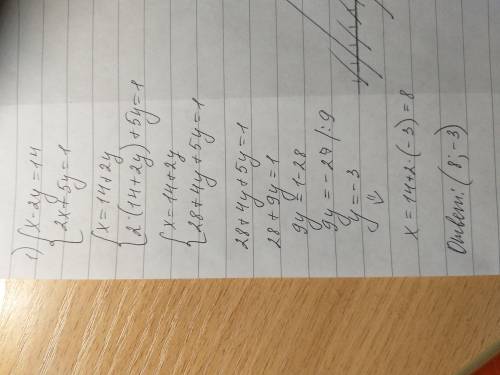 1) { x-2y=14
{ 2x+5y=1
{ x=14+2y
{ 2·(14+2y)+5y=1
{ x=14+2y
{ 28+4y+5y=1
28+4y+5y=1
28+9y=1
9y=1-28
9y=-27 /:9
y=-3
x=14+2·(-3)=8
Ответ: (8;-3)